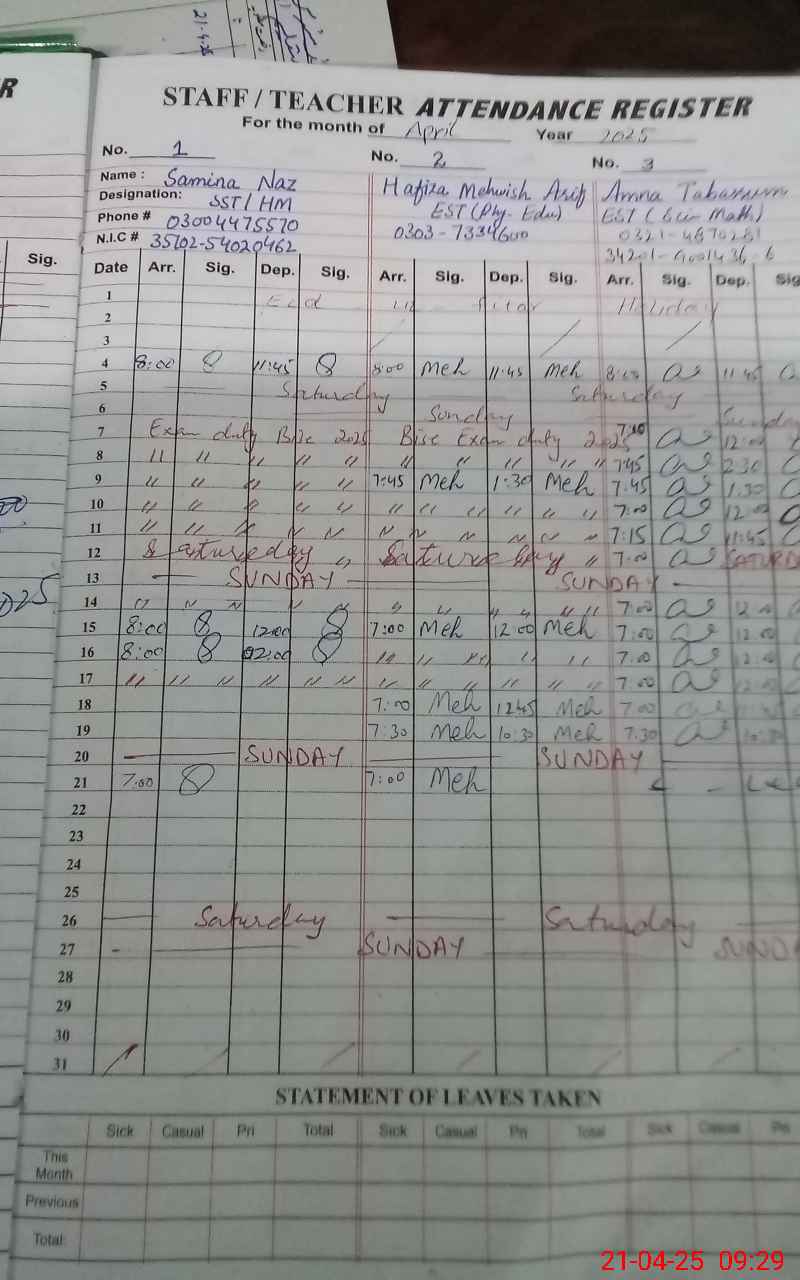 21-4-25
R
STAFF / TEACHER ATTENDANCE REGISTER
For the month of April Year 2025
No. 1 No. 2 No. 3
Name: Samina Naz Hafiza Mehwish Arif Amna Tabassum
Designation: SST/HM EST (Phy. Edu) EST (Sci-Math)
Phone # 03004475570 0303-7334600 0321-4870281
N.I.C # 35102-54020462 34201-9001436-6
Sig.
Date Arr. Sig. Dep. Sig. Arr. Sig. Dep. Sig. Arr. Sig. Dep. Sig
1 Eid ul fitar Holiday
2
3
4 8:00 11:45 8:00 Meh 11:45 Meh 8:00 11 45
5 Saturday Saturday
6 Sunday Sunday
7 Exam duty Bise 2025 Bise Exam duty 2025 7:30 12:00
8 " " " " " " " " " " 7:45 2:30
9 " " " " " 7:45 Meh 1:30 Meh 7:45 1:30
10 " " " " " " " " " " " 7:00 12:00
11 " " " " " " " " " " " 7:15 11:45
12 Satureday " Satureday " 7:00 SATURD
13 SUNDAY SUNDAY
14 " " " " " " " " " " " 7:00 12:00
15 8:00 12:00 7:00 Meh 12:00 Meh 7:00 12:00
16 8:00 02:00 " " " " " 7:00 12:00
17 " " " " " " " " " " " 7:00 12:00
18 7:00 Meh 1245 Meh 7:00
19 7:30 Meh 10:30 Meh 7.30 10:30
20 SUNDAY SUNDAY
21 7:00 7:00 Meh
22
23
24
25
26 Saturday Saturday
27 SUNDAY SUNDA
28
29
30
31
STATEMENT OF LEAVES TAKEN
Sick Casual Pri Total Sick Casual Pri Total Sick Casual Pri
This Month
Previous
Total:
21-04-25 09:29